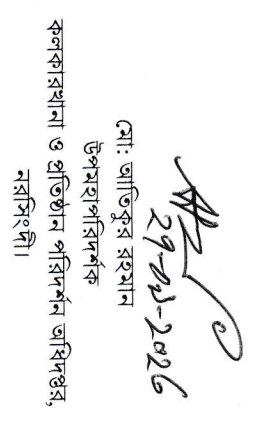 মো: আতিকুর রহমান
উপমহাপরিদর্শক
কলকারখানা ও প্রতিষ্ঠান পরিদর্শন অধিদপ্তর,
নরসিংদী।